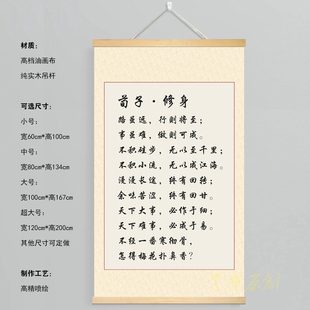 材质：
高档油画布
纯实木吊杆
可选尺寸：
小号：
宽60cm*高100cm
中号：
宽80cm*高134cm
大号：
宽100cm*高167cm
超大号：
宽120cm*高200cm
其他尺寸可定做
制作工艺：
高精喷绘
荀子·修身
路虽远，行则将至；
事虽难，做则可成。
不积硅步，无以至千里；
不积小流，无以成江海。
漫漫长途，终有回转；
余味苦涩，终有回甘。
天下大事，必作于细；
天下难事，必成于易。
不经一番寒彻骨，
怎得梅花扑鼻香？